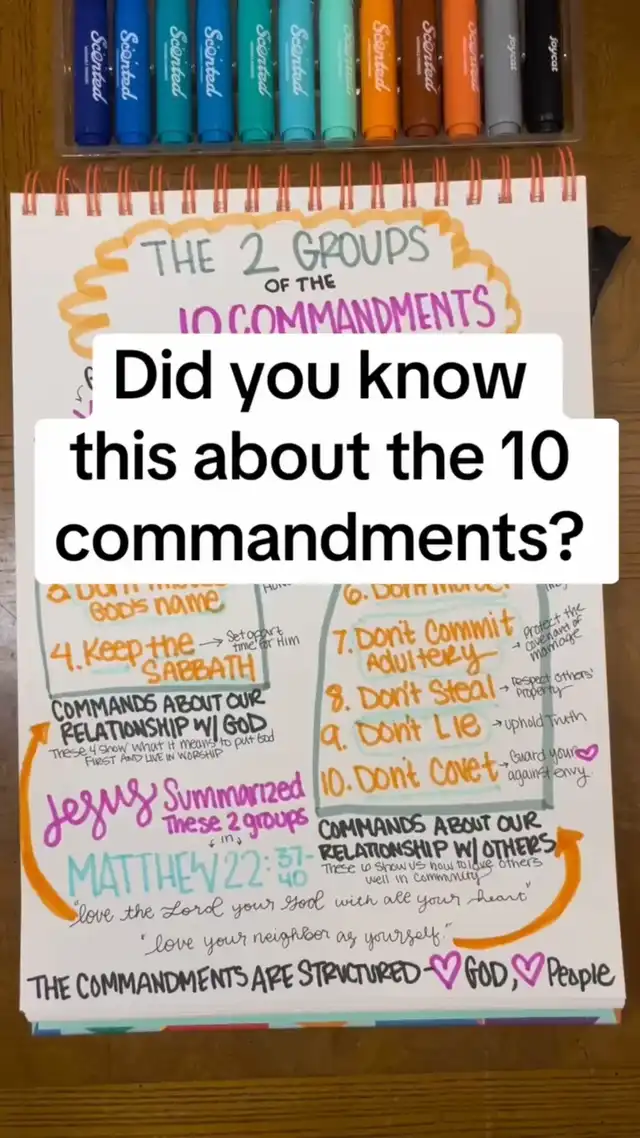 Scented
Scented
Scented
Scented
Scented
Scented
Scented
Scented
Scented
Scented
Joycat
Joycat
THE 2 GROUPS
OF THE
10 COMMANDMENTS
Did you know
this about the 10
commandments?
GOD'S name
4. Keep the
SABBATH
Set apart
time for Him
COMMANDS ABOUT OUR
RELATIONSHIP W/ GOD
These 4 show what it means to put God
FIRST AND LIVE IN WORSHIP
6. Don't murder
7. Don't Commit
Adultery
Protect the
covenant of
marriage
8. Don't Steal
respect others'
Property
9. Don't Lie
uphold Truth
10. Don't Covet
Guard your
against envy
COMMANDS ABOUT OUR
RELATIONSHIP W/ OTHERS
These 6 show us how to love others
well in community
Jesus Summarized
These 2 groups
in
MATTHEW 22:37-
40
"love the Lord your God with all your heart"
"love your neighbor as yourself."
THE COMMANDMENTS ARE STRUCTURED - GOD, People